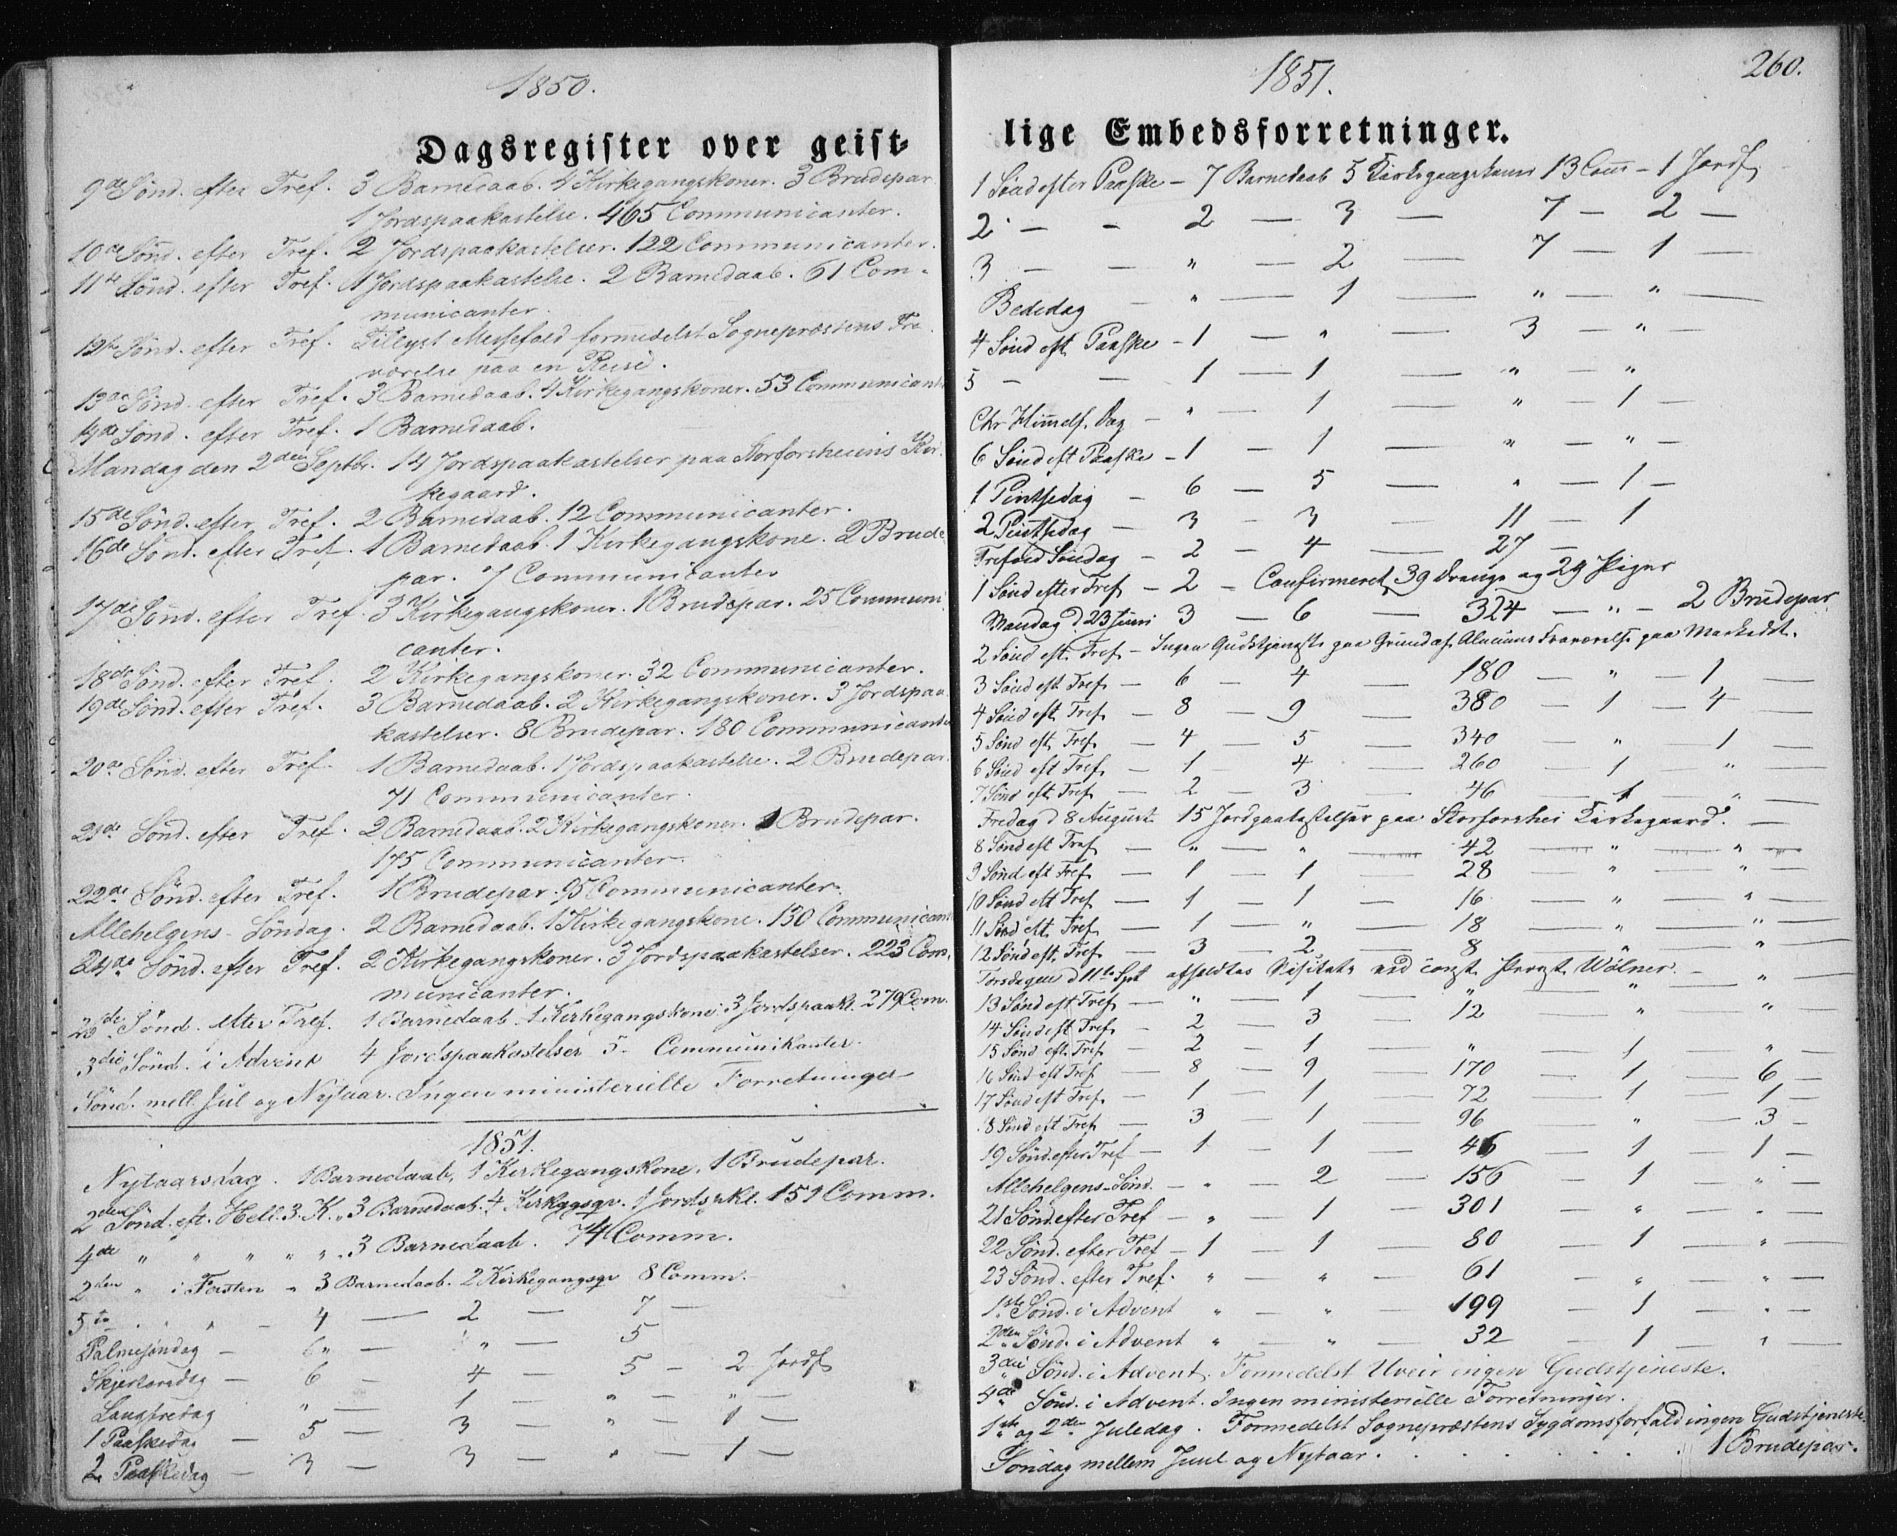 1850.
Dagsregister over geist-
9de Sønd. efter Tref. 3 Barnedaab. 4 Kirkegangskoner. 3 Brudepar
1 Jordspaakastelse. 465 Communicanter.
10de Sønd. efter Tref. 2 Jordspaakastelser. 122 Communicanter.
11te Sønd. efter Tref. 1 Jordspaakastelse. 2 Barnedaab. 61 Com-
municanter.
12te Sønd. efter Tref. Tillyst Messefald formedelst Sognepræstens Fra-
værelse paa en Reise.
13de Sønd. efter Tref. 3 Barnedaab. 4 Kirkegangskoner. 53 Communicant
14de Sønd. efter Tref. 1 Barnedaab.
Mandag den 2den Septbr. 14 Jordspaakastelser paa Storforsheiens Kir-
kegaard.
15de Sønd. efter Tref. 2 Barnedaab. 12 Communicanter.
16de Sønd. efter Tref. 1 Barnedaab. 1 Kirkegangskone. 2 Brude-
par. 7 Communicanter
17de Sønd. efter Tref. 3 Kirkegangskoner. 1 Brudepar. 25 Communi-
canter.
18de Sønd. efter Tref. 2 Kirkegangskoner. 32 Communicanter.
19de Sønd. efter Tref. 3 Barnedaab. 2 Kirkegangskoner. 3 Jordspaa-
kastelser. 8 Brudepar. 180 Communicanter
20de Sønd. efter Tref. 1 Barnedaab. 1 Jordspaakastelse. 2 Brudepar.
71 Communicanter.
21de Sønd. efter Tref. 2 Barnedaab. 2 Kirkegangskoner. 1 Brudepar.
175 Communicanter.
22de Sønd. efter Tref. 1 Brudepar. 95 Communicanter.
Allehelgens-Søndag. 2 Barnedaab. 1 Kirkegangskone. 130 Communicant
24de Sønd. efter Tref. 2 Kirkegangskoner. 3 Jordspaakastelser. 223 Com-
municanter.
25de Sønd. efter Tref. 1 Barnedaab. 1 Kirkegangskone. 3 Jordspaak. 279 Com.
3die Sønd. i Advent 4 Jordspaakastelser 5- Communikanter.
Sønd. mell. Jul og Nytaar. Ingen ministerielle Forretninger
1851.
Nytaarsdag. 1 Barnedaab, 1 Kirkegangskone, 1 Brudepar.
2den Sønd. eft. Hell. 3. K. " 3 Barnedaab. 4 Kirkggsgr. 1 Jordspkl. 151 Comm.
4de " " " " " 3 Barnedaab. 74 Comm.
2den " i Fasten " 3 Barnedaab. 2 Kirkegangsgr 8 Comm.
5te " " " — 4 — 2 — 7 —
Palmesøndag — 6 " — " — 5
Skjertorsdag — 6 — 4 — 5 — 2 Jordf
Langfredag " — 1 — " — " —
1 Paaskedag — 5 — 3 — " — 1 —
2 Paaskedag — 3 — 3 — " — 1 —
1851.
260.
lige Embedsforretninger.
1 Sønd efter Paaske — 7 Barnedaab 5 Kirkegangskoner 13 Com — 1 Jordf
2 — - 2 — 3 — 7 — 2 —
3 — - " — 2 — 7 — 1 —
Bededag — " — 1 — " — "
4 Sønd eft Paaske — 1 — " — 3 — " —
5 — — 1 — 1 — " — "
Chr Himelf. Dag — " — 1 — " — 1 —
6 Sønd eft Paaske — 1 — 1 — " — " —
1 Pintsedag — 6 — 5 " — 1 —
2 Pintsedag — 3 — 3 — 11 — 1
Trefold Søndag — 2 — 4 — 27 —
1 Sønd efter Tref — 2 — Confirmeret 39 Drenge og 29 Piger
Mandag d. 23 Juni 3 — 6 — 324 — " — 2 Brudepar
2 Sønd eft. Tref — Ingen Gudstjeneste paa Grund af Almuens Fraværelse paa Markedet.
3 Sønd eft Tref — 6 — 4 — 180 — " — 1 —
4 Sønd eft Tref — 8 — 9 — 380 — 1 — 4 —
5 Sønd eft. Tref — 4 — 5 — 340 — " — 1 —
6 Sønd eft Tref — 1 — 4 — 260 — 1 — " —
7 Sønd eft Tref — 2 — 3 — 46 — 1 — " —
Fredag d 8 August 15 Jordpaakastelser paa Storforshei Kirkegaard. —
8 Sønd eft Tref — " — " — 42 — " — " —
9 Sønd eft Tref — 1 — 1 — 28 — " — " —
10 Sønd eft Tref — 1 — 1 — 16 — " — "
11 Sønd eft. Tref — 1 — " — 18 — " — " —
12 Sønd eft. Tref — 3 — 2 — 8 — " — " —
Torsdagen d 11te Spt afholdtes Visitats ved const. Provst Wølner. — " —
13 Sønd eft Tref — " — 1 — " — " — "
14 Sønd eft Tref — 2 — 3 — 12 — " — "
15 Sønd eft Tref — 2 — 1 — " — 1 — " —
16 Sønd eft Tref — 8 — 9 — 170 — 1 — 6 —
17 Sønd eft Tref — 1 — 1 — 72 — 1 — 1 —
18 Sønd eft Tref — 3 — 1 — 96 — " — 3 —
19 Sønd. efter Tref — 1 — 1 — 46 — 1 — 1 —
Allehelgens-Sønd. — " — 2 — 156 — 1 — " —
21 Sønd. efter Tref — " — 1 — 301 — " — " —
22 Sønd. efter Tref — 1 — 1 — 80 — 1 — " —
23 Sønd. efter Tref. " — " — 61 — " — " —
1ste Sønd. i Advent " — " — 199 — 1 — " —
2den Sønd. i Advent " — " — 32 — 1 — " —
3die Sønd. i Advent. Formedelst Uveir ingen Gudstjeneste.
4de Sønd. i Advent. Ingen ministerielle Forretninger.
1ste og 2den Juledag. Formedelst Sognepræstens Sygdomsforfald ingen Gudstjeneste.
Søndag mellem Juul og Nytaar. . . . . . . . 1 Brudepar.